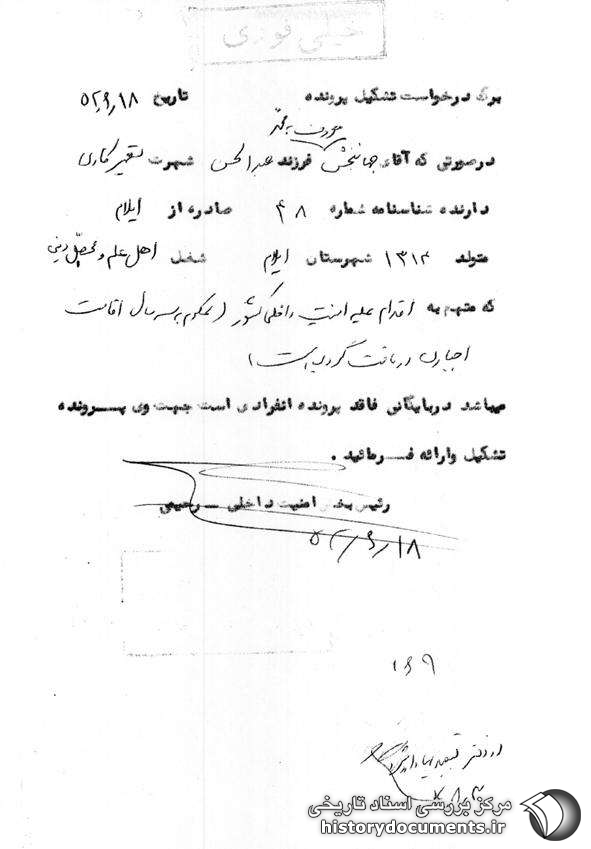 خیلی فوری
برگ درخواست تشکیل پرونده تاریخ ۵۲٫۶٫۱۸
معروف به
درصورتی که آقای جهانبخش فرزند عبدالحسن شهرت
دارنده شناسنامه شماره ۴۸ صادره از ایلام
متولد ۱۳۱۴ شهرستان ایلام شغل اهل علم و محصل دینی
که متهم به اقدام علیه امنیت داخلی کشور (محکوم به سه سال اقامت
اجباری دریافت گردیده است)
میباشد دربایگانی فاقد پرونده انفرادی است جهت وی پــرونده
تشکیل وارائه فــرمائید .
رئیس بخش امنیت داخلی ــ رحیمی
۵۲٫۶٫۱۸
۱۶۹
مرکز بررسی اسناد تاریخی
historydocuments.ir